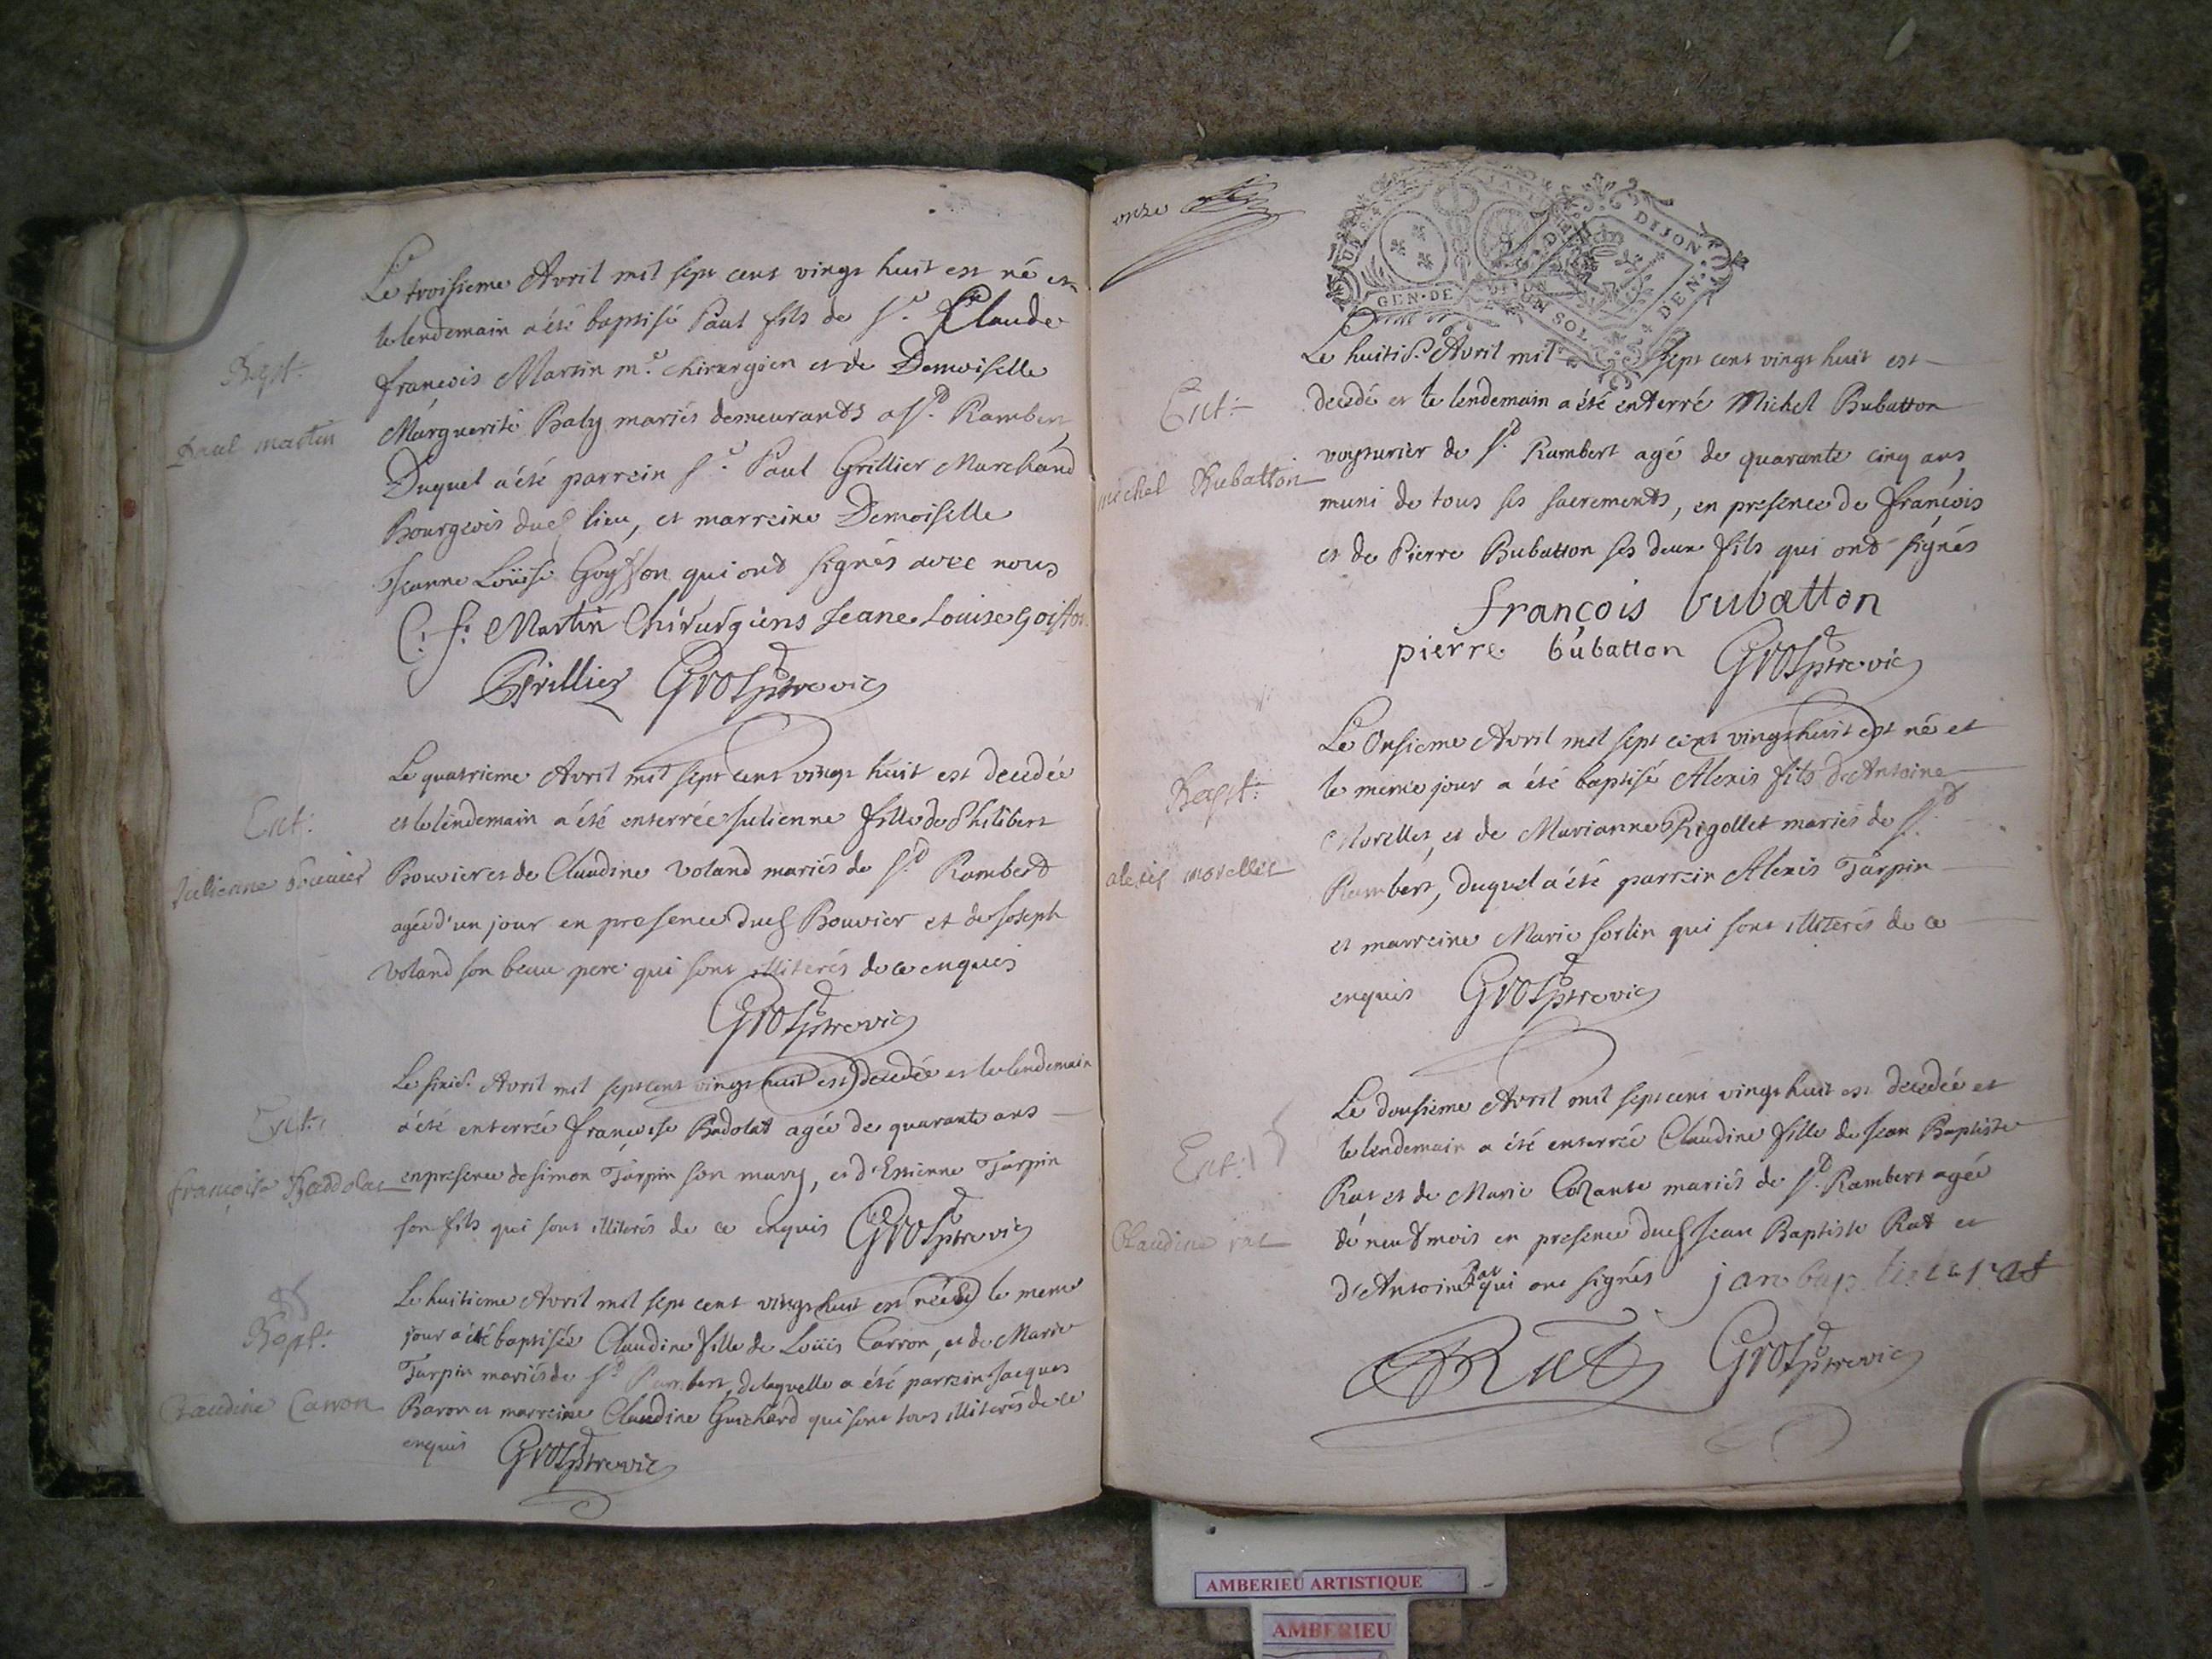 Le troisieme Avril mil sept cent vingt huit est né et
le lendemain a été baptisé Paul fils de Sr. Claude
françois Martin me. chirurgien et de Demoiselle
Bapt.
Marguerite Baly mariés demeurants a St. Rambert
Paul martin
Duquel a été parrein Sr. Paul Grillier Marchand
Bourgeois dud lieu, et marreine Demoiselle
Jeanne Loüise Goyffon qui ont signés avec nous
C. f. Martin Chirurgiens Jeane Louise Goiffon
Grillier Gros ptre vic
Le quatrieme Avril mil sept cent vingt huit est decedée
et le lendemain a été enterrée Julienne fille de Philibert
Ent.
Bouvier et de Claudine Voland mariés de St. Rambert
Julienne bouvier
agée d'un jour en presence dud Bouvier et de Joseph
Voland son beau pere qui sont illiterés de ce enquis
Gros ptre vic
Le sixie. Avril mil sept cent vingt huit est decedée et le lendemain
a été enterrée françoise Badolat agée de quarante ans
Ent.
en presence de simon Tarpin son mary, et d'Estienne Tarpin
françoise Baddolat
son fils qui sont illiterés de ce enquis Gros ptre vic
Le huitieme Avril mil sept cent vingt huit est née et le meme
jour a été baptisée Claudine fille de Loüis Carron, et de Marie
Bapt.
Tarpin mariés de St. Rambert, de laquelle a été parrein Jacques
Claudine Carron
Baron et marreine Claudine Guichard qui sont tous illiterés de ce
enquis Gros ptre vic
onze
GEN. DE DIJON
DIJON
UN SOL
DEN.
Le huitie. Avril mil sept cent vingt huit est
decedé et le lendemain a été enterré Michel Bubatton
Ent.
voyturier de St. Rambert agé de quarante cinq ans
michel Bubatton
muni de tous ses sacrements, en presence de françois
et de Pierre Bubatton ses deux fils qui ont signés
françois bubatton
pierre bubatton Gros ptre vic
Le Onsieme Avril mil sept cent vingt huit est né et
le meme jour a été baptisé Alexis fils d'Antoine
Bapt.
Morellet, et de Marianne Rigollet mariés de St.
alexis morellet
Rambert, duquel a été parrein Alexis Tarpin
et marreine Marie sorlin qui sont illiterés de ce
enquis Gros ptre vic
Le dousieme Avril mil sept cent vingt huit est decedée et
le lendemain a été enterrée Claudine fille de Jean Baptiste
Ent.
Rat et de Marie Cozante mariés de St. Rambert agée
Claudine rat
de neuf mois en presence dud Jean Baptiste Rat et
d'Antoine Rat qui ont signés jan baptiste rat
Rat Gros ptre vic
AMBERIEU ARTISTIQUE
AMBERIEU